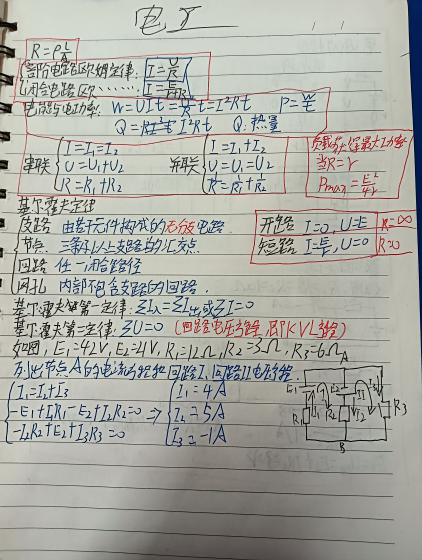 电工
R=ρL/A
部分电路欧姆定律:I=U/R
闭合电路欧……:I=E/(R+r)
电能与电功率:W=UIt=U²/R t=I²Rt P=W/t
Q=I²Rt Q:热量
串联 { I=I₁=I₂ U=U₁+U₂ R=R₁+R₂
并联 { I=I₁+I₂ U=U₁=U₂ 1/R=1/R₁+1/R₂
负载获得最大功率
当R=r
Pmax=E²/4r
基尔霍夫定律
支路 由若干元件构成的无分支电路.
节点. 三条及以上支路的汇交点
回路 任一闭合路径
网孔 内部不包含支路的回路.
开路 I=0,U=E R=∞
短路 I=E/r,U=0 R=0
基尔霍夫第一定律:ΣI入=ΣI出或ΣI=0
基尔霍夫第二定律:ΣU=0 (回路电压方程,即KVL方程)
如图,E₁=42V,E₂=21V,R₁=12Ω,R₂=3Ω,R₃=6Ω
列出节点A的电流方程和回路I、回路II电压方程.
I₁=I₂+I₃
-E₁+I₁R₁-E₂+I₂R₂=0
-I₂R₂+E₂+I₃R₃=0
⇒ { I₁=4A
I₂=5A
I₃=-1A
A
E₁ E₂
I₁ I₂ I₃
R₁ R₂ R₃
B